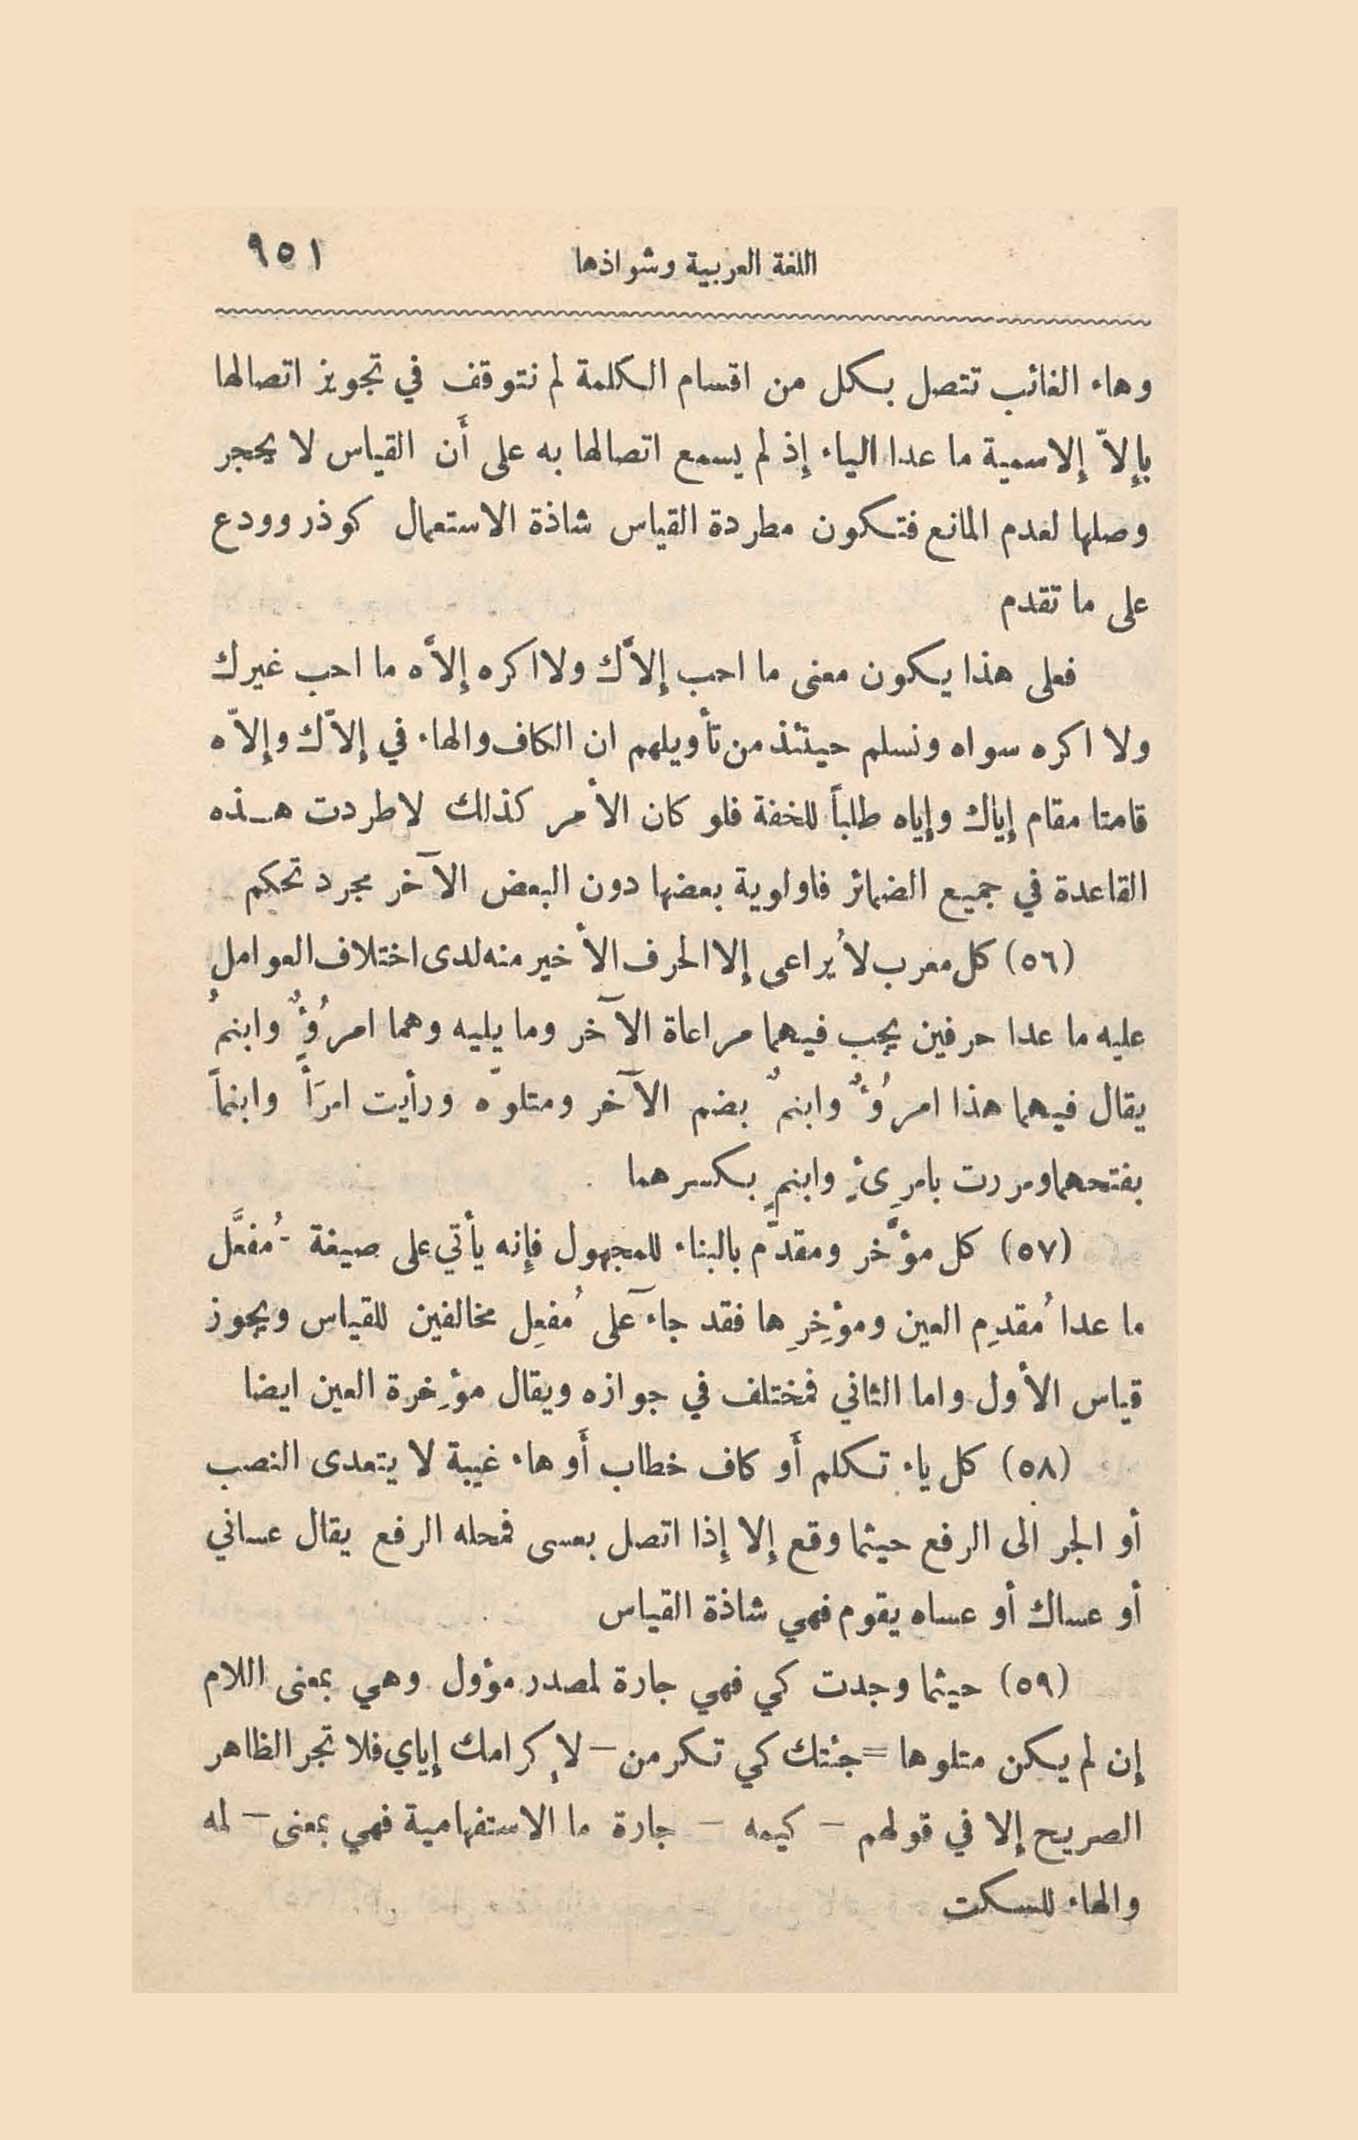 اللغة العربية وشواذها ٩٥١
وهاء الغائب تتصل بكل من اقسام الكلمة لم نتوقف في تجويز اتصالها
بإلاّ إلاسمية ما عدا الياء إذ لم يسمع اتصالها به على أَن القياس لا يحجر
وصلها لعدم المانع فتكون مطردة القياس شاذة الاستعمال كوذر وودع
على ما تقدم
فعلى هذا يكون معنى ما احب إلاَّك ولا اكره إلاَّه ما احب غيرك
ولا اكره سواه ونسلم حينئذ من تأويلهم ان الكاف والهاء في إلاّك وإلاّه
قامتا مقام إياك وإياه طلباً للخفة فلو كان الأمر كذلك لاطردت هـذه
القاعدة في جميع الضمائر فاولوية بعضها دون البعض الآخر مجرد تحكم
(٥٦) كل معرب لا يُراعى إلا الحرف الأخير منه لدى اختلاف العوامل
عليه ما عدا حرفين يجب فيهما مراعاة الآخر وما يليه وهما امرُؤٌ وابنمُ
يقال فيهما هذا امرُؤٌ وابنمٌ بضم الآخر ومتلوّه ورأيت امرَأً وابنماً
بفتحهما ومررت بامرِئٍ وابنمٍ بكسرهما
(٥٧) كل مؤَخر ومقدَّم بالبناء للمجهول فإنه يأتي على صيغة - مُفعَّل
ما عدا مُقدِم العين ومؤخِرِها فقد جاءَ على مُفعِل مخالفين للقياس ويجوز
قياس الأول واما الثاني فمختلف في جوازه ويقال مؤخِرة العين ايضا
(٥٨) كل ياء تكلم أَو كاف خطاب أَو هاء غيبة لا يتعدى النصب
أو الجر الى الرفع حيثما وقع إلا إذا اتصل بعسى فمحله الرفع يقال عساني
أو عساك أو عساه يقوم فهي شاذة القياس
(٥٩) حيثما وجدت كي فهي جارة لمصدر مؤول وهي بمعنى اللام
إن لم يكن متلوها = جئتك كي تكرمن – لإكرامك إياي فلا تجر الظاهر
الصريح إلا في قولهم – كيمه – جارة ما الاستفهامية فهي بمعنى – لمه
والهاء للسكت